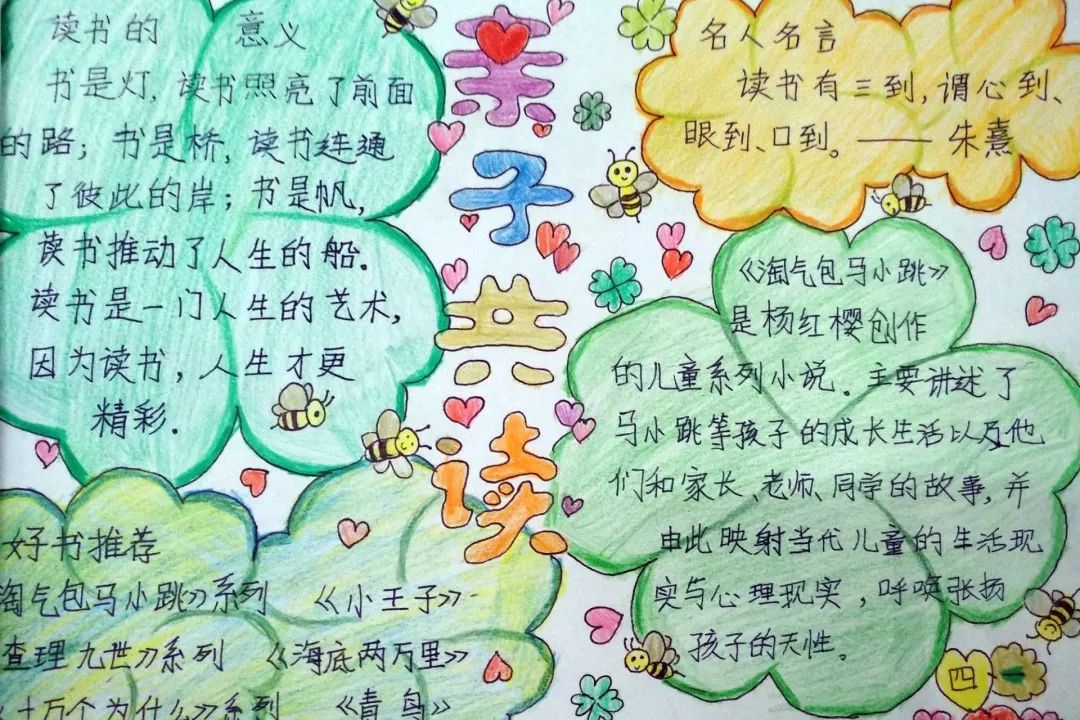 读书的 意义
书是灯,读书照亮了前面
的路;书是桥,读书连通
了彼此的岸;书是帆,
读书推动了人生的船.
读书是一门人生的艺术,
因为读书,人生才更
精彩.
亲子共读
名人名言
读书有三到,谓心到、
眼到、口到。——朱熹
《淘气包马小跳》
是杨红樱创作
的儿童系列小说。主要讲述了
马小跳等孩子的成长生活以及他
们和家长、老师、同学的故事,并
由此映射当代儿童的生活现
实与心理现实,呼唤张扬
孩子的天性。
好书推荐
淘气包马小跳》系列 《小王子》
查理九世》系列 《海底两万里》
十万个为什么》系列 《青鸟》
四